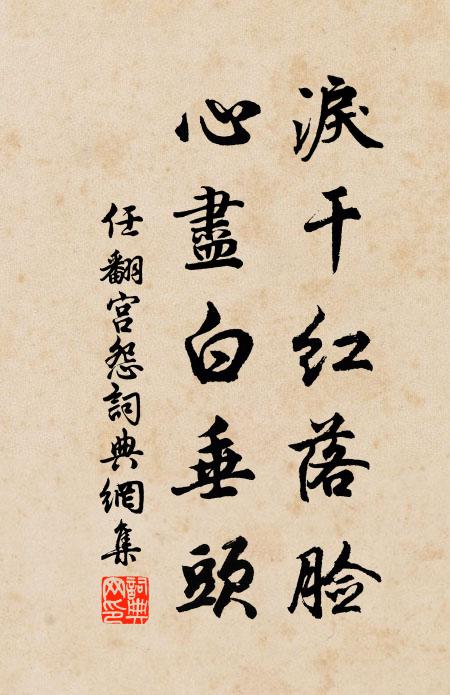 淚干红落脸
心盡白垂頭
任翻宫怨詞典網集
詞典網印